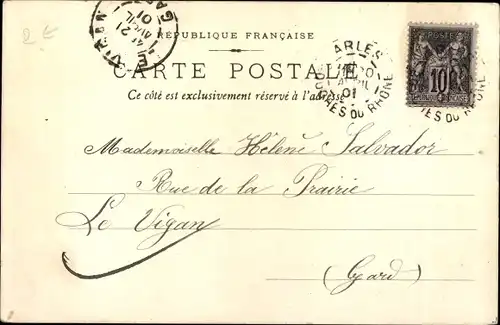 2 €
LE VIGAN
21
AVRIL
01
GARD
RÉPUBLIQUE FRANÇAISE
CARTE POSTALE
Ce côté est exclusivement réservé à l'adresse
ARLES
20
AVRIL
01
BCHES DU RHONE
POSTES
10
Mademoiselle Hélène Salvador
Rue de la Prairie
Le Vigan
(Gard)